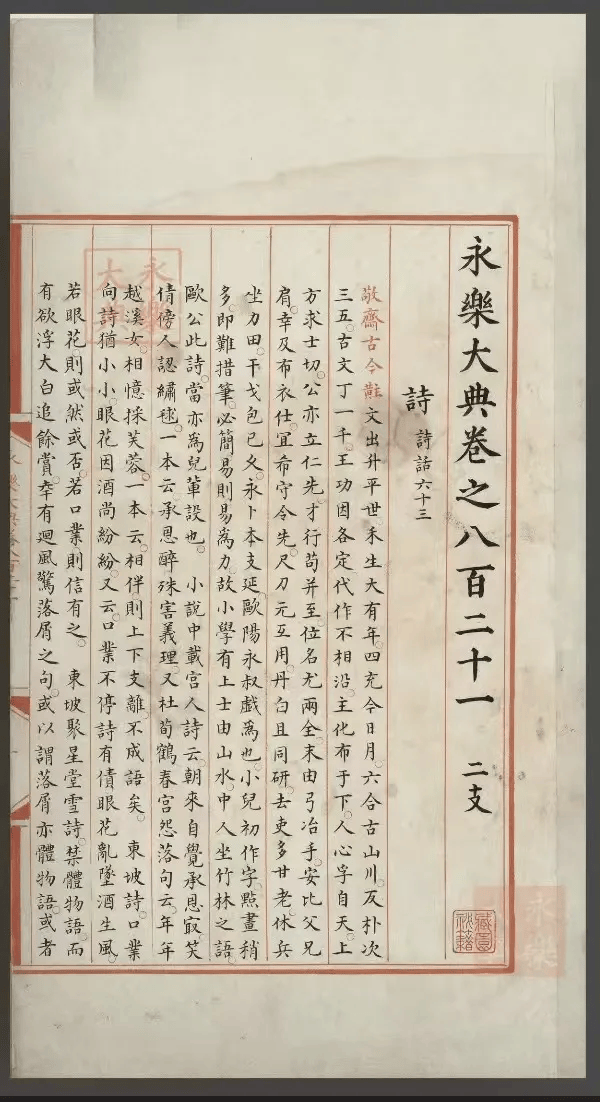 永樂大典卷之八百二十一 二支
詩 詩話六十三
敬齋古今黈 文出升平世。禾生大有年。四充今日月。六合古山川。反朴次
三五。古文丁一千。王功因各定。代作不相沿。主化布于下。人心孚自天。上
方求士切。公亦立仁先。才行苟并至。位名尤兩全。末由弓冶手。安比父兄
肩。幸及布衣仕。冝希守令先。尺刀元互用。丹白且同研。去吏多廿老。休兵
坐力田。干戈包已久。永卜本支延。歐陽永叔戲為也。小兒初作字。點畫稍
多。即難措筆。必簡易則易為力。故小學有上士由山水。中人坐竹林之語。
歐公此詩。當亦為兒軰設也。 小說中載宫人詩云。朝來自覺承恩冣。笑
倩傍人認繡毬。一本云。承恩醉。殊害義理。又杜荀鶴春宫怨落句云。年年
越溪女。相憶採芙蓉。一本云。相伴則上下支離。不成語矣。 東坡詩。口業
向詩猶小小。眼花因酒尚紛紛。又云。口業不停詩有債。眼花亂墜酒生風。
若眼花。則或然或否。若口業。則信有之。 東坡聚星堂雪詩。禁體物語。而
有欲浮大白追餘賞。幸有迴風驚落屑之句。或以謂落屑亦體物語。或者
永樂大典
藏園秘籍